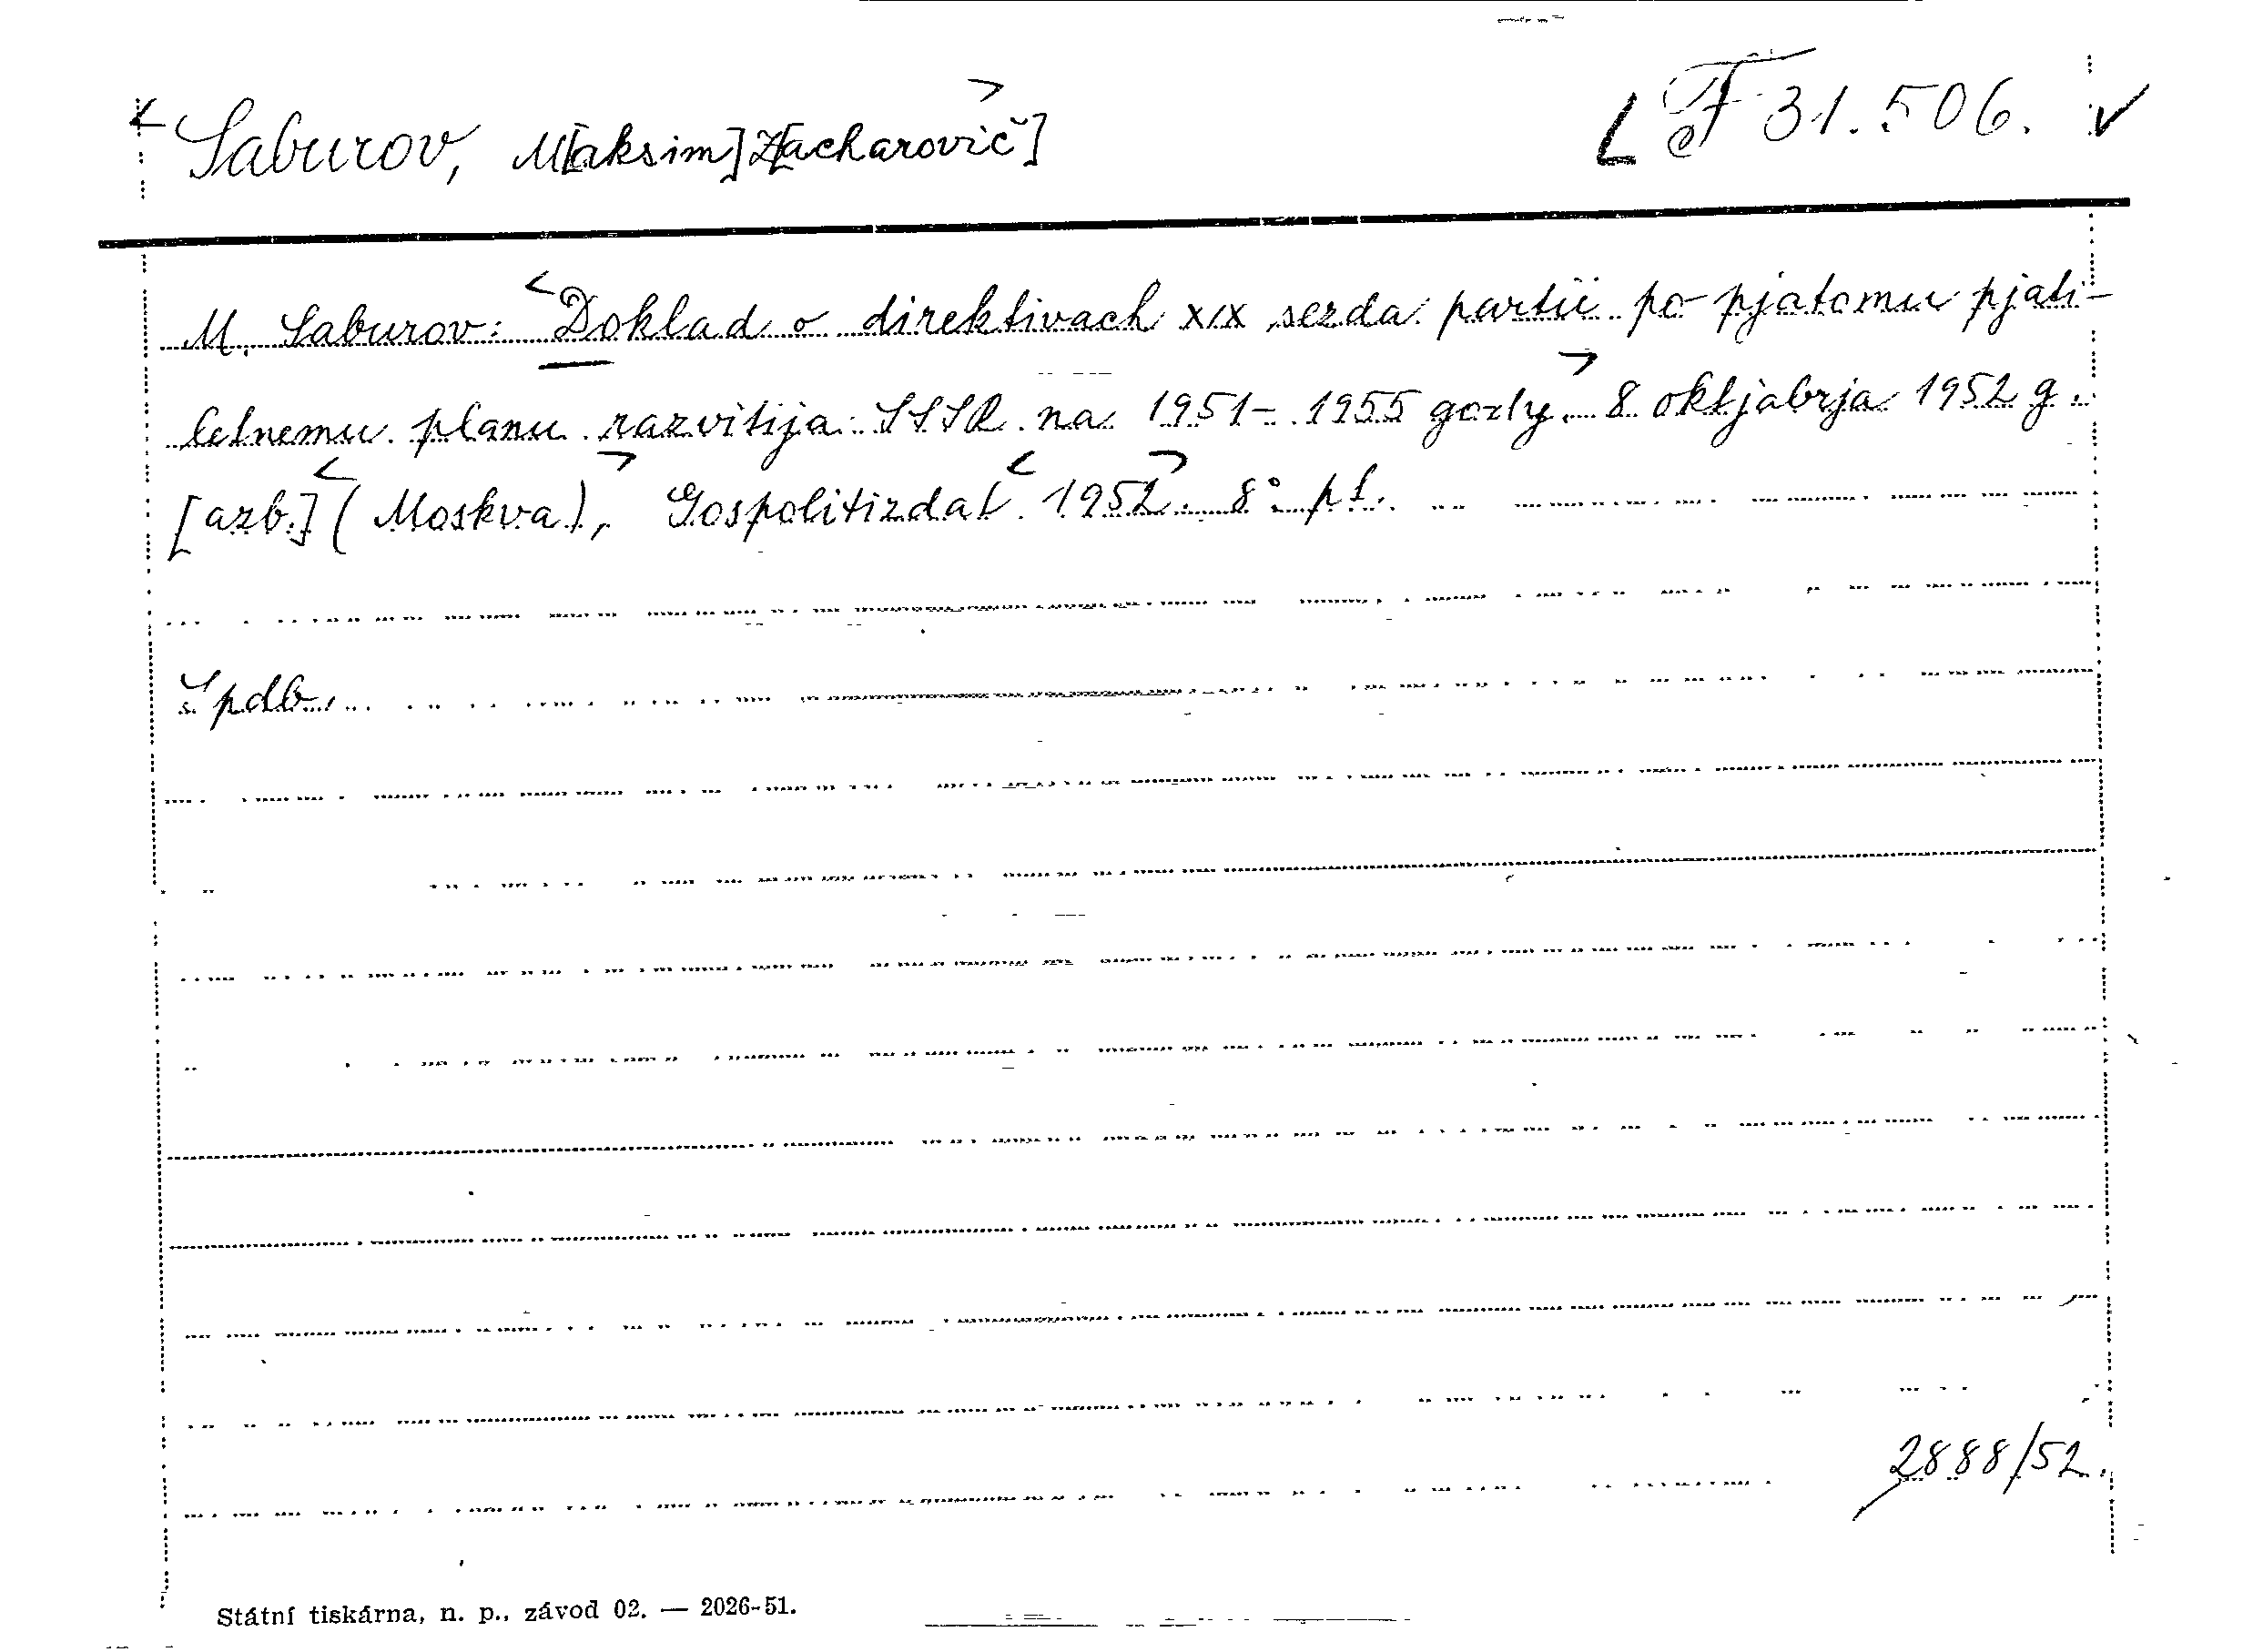 Saburov, M[aksim] Z[acharovič]
F 31.506.
M. Saburov: Doklad o direktivach XIX sezda partii po pjatomu pjati-
letnemu planu razvitija SSSR na 1951-1955 gody. 8 oktjabrja 1952 g.
[azb.] (Moskva), Gospolitizdat 1952. 8° pf.
Spdb.
2888/52.
Státní tiskárna, n. p., závod 02. — 2026-51.